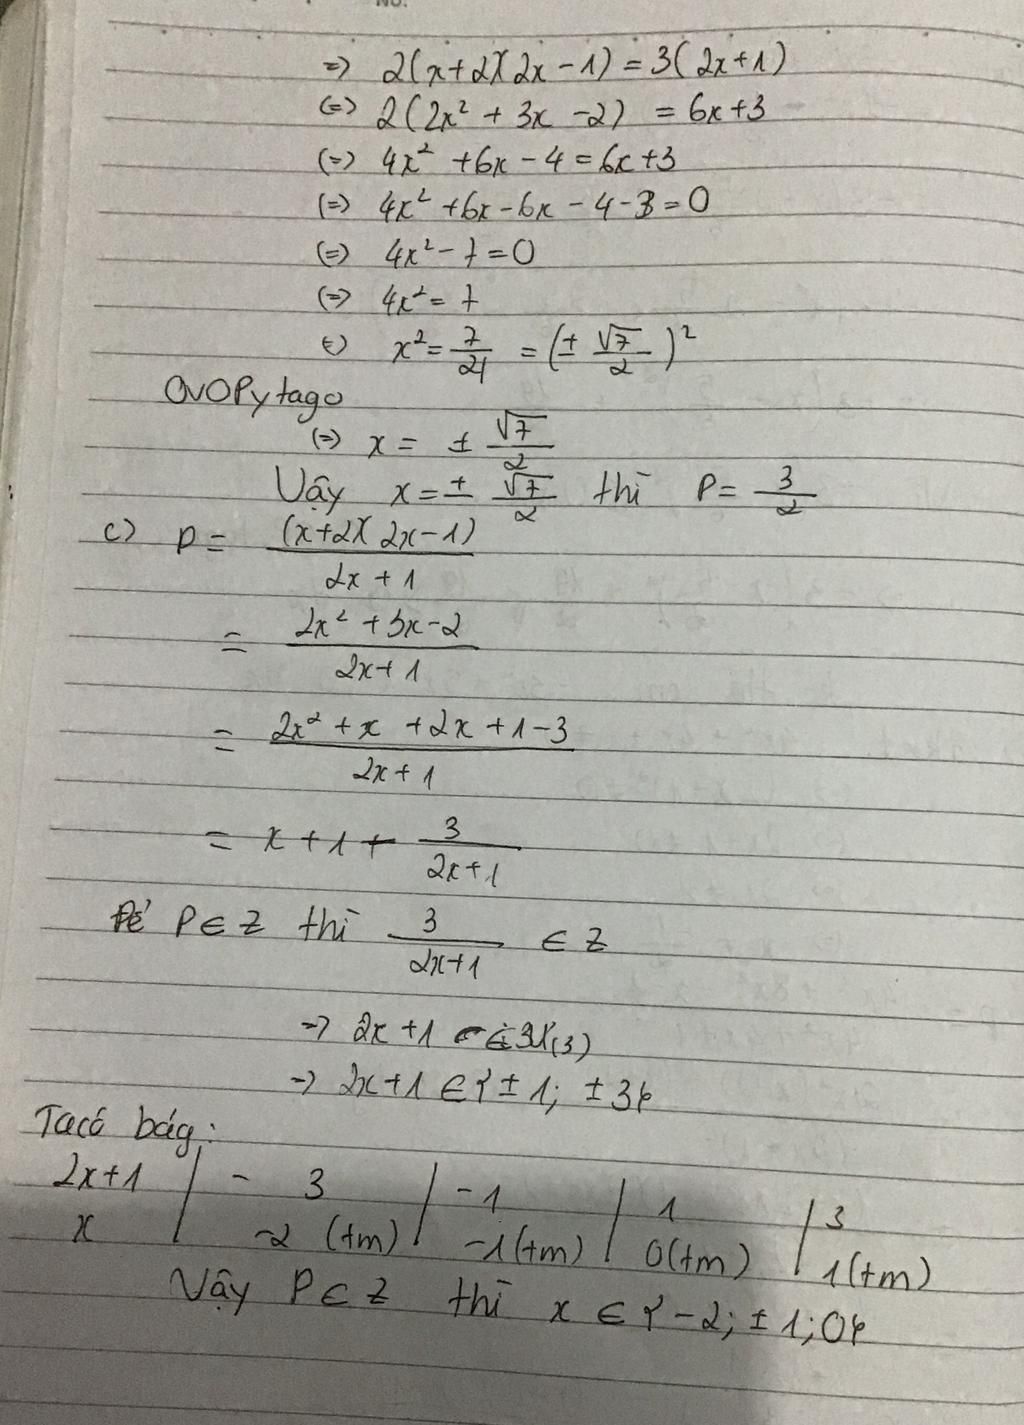 => 2(x+2)(2x-1) = 3(2x+1)
(=) 2(2x² + 3x -2) = 6x+3
(=) 4x² +6x - 4 = 6x+3
(=) 4x² +6x-6x - 4-3=0
(=) 4x² - 7 = 0
(=) 4x² = 7
x² = 7/4 = (± √7/2)²
OVOPytago
(=) x = ± √7/2
Vậy x = ± √7/2 thì P = 3/2
c) P = (x+2)(2x-1)/2x+1
= 2x² +3x-2/2x+1
= 2x² + x +2x +1-3/2x+1
= x +1 + 3/2x+1
Để P ∈ Z thì 3/2x+1 ∈ Z
=> 2x +1 ∈ Ư(3)
=> 2x+1 ∈ { ± 1; ± 3}
Ta có bảg:
2x+1 | - 3 | -1 | 1 | 3
x | -2 (tm) | -1(tm) | 0(tm) | 1(tm)
Vậy P ∈ Z thì x ∈ { -2; ± 1; 0}